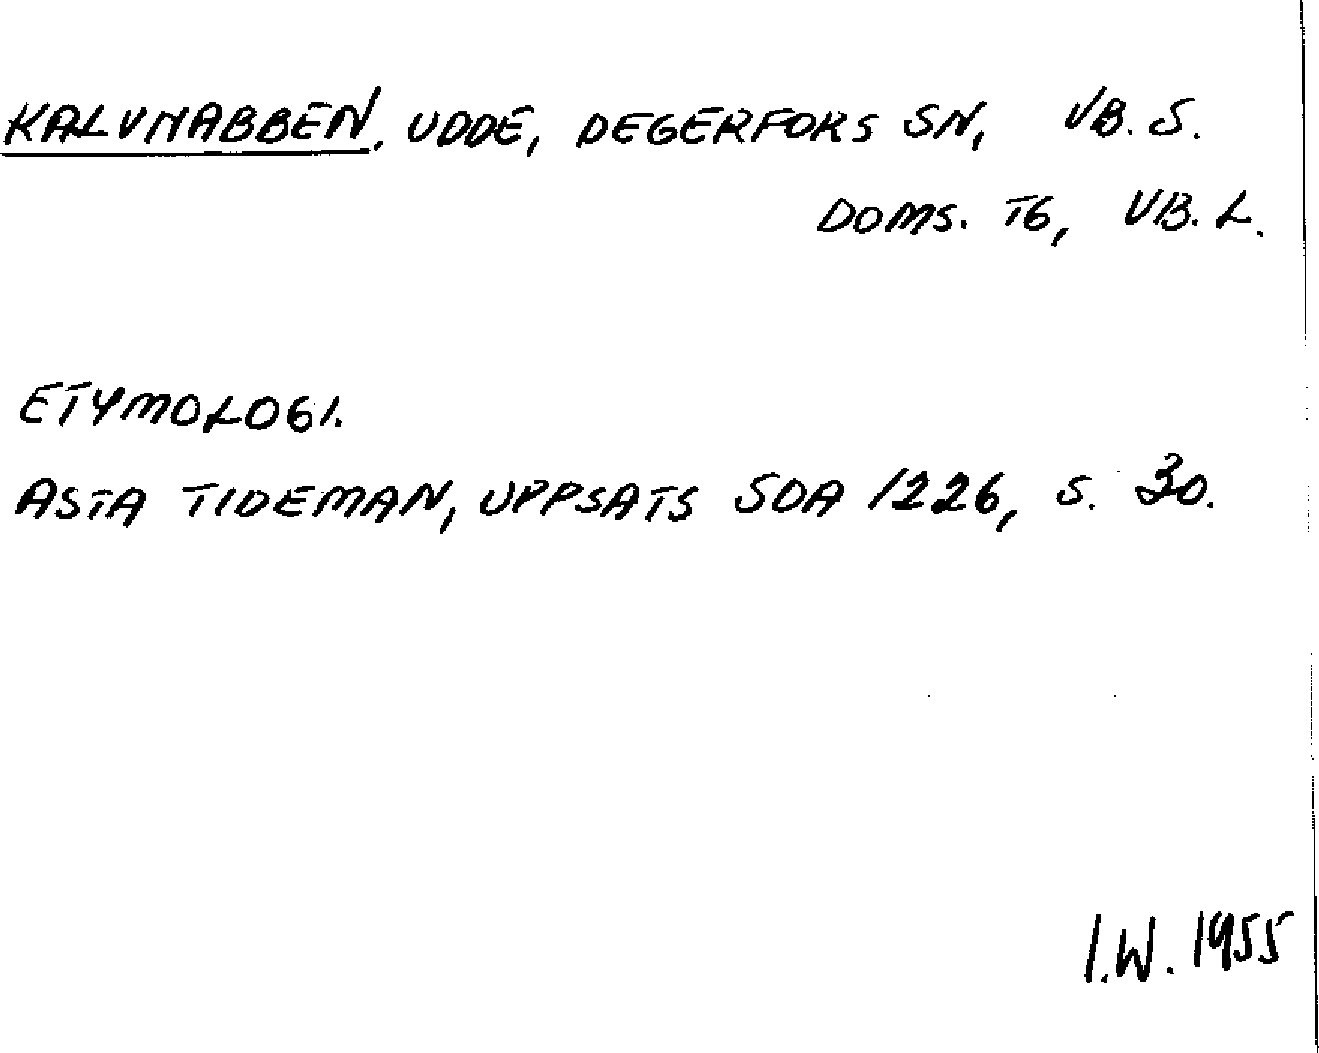 KALVNABBEN, UDDE, DEGERFORS SN, VB. S.
DOMS. TG, VB. L.
ETYMOLOGI.
ASTA TIDEMAN, UPPSATS SOA 1226, S. 30.
I.W. 1955